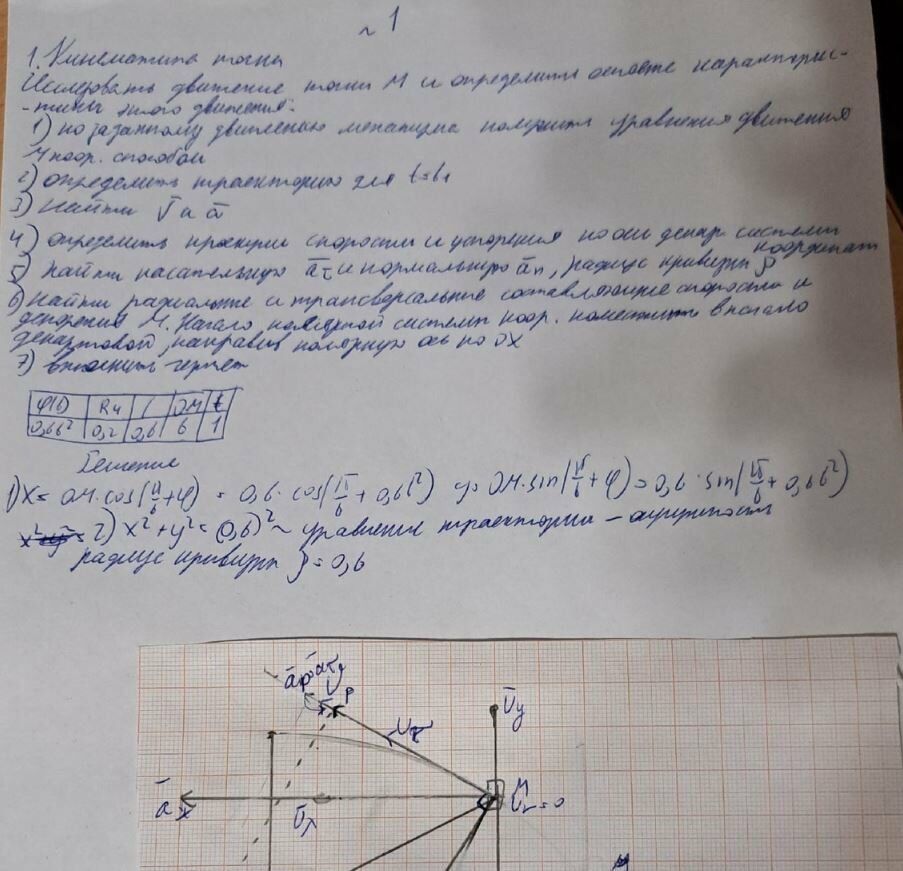 ~ 1
1. Кинематика точки
Исследовать движение точки М и определить характерис-
-тики этого движения:
1) по заданному движению механизма получить уравнения движения
М коор. способом
2) определить траекторию для t=t₁
3) найти V̄ и ā
4) определить проекции скорости и ускорения на оси декар. системы
координат
5) найти касательную āτ и нормальную ān, радиус кривизны ρ
6) найти радиальные и трансверсальные составляющие скорости и
ускорения М. Начало полярной системы коор. поместить в начало
декартовой, направив полярную ось по ОХ
7) выполнить чертёж
φ(t) R м l ОМ t
0,6t² 0,2 0,6 6 1
Решение
1) x = ОМ·cos(π/6+φ) = 0,6·cos(π/6 + 0,6t²) y = ОМ·sin(π/6+φ) = 0,6·sin(π/6 + 0,6t²)
2) x²+y² = (0,6)² ~ уравнение траектории – окружность
радиус кривизны ρ = 0,6
āτ
P
V̄y
ā x
V̄x
M
V̄r = 0